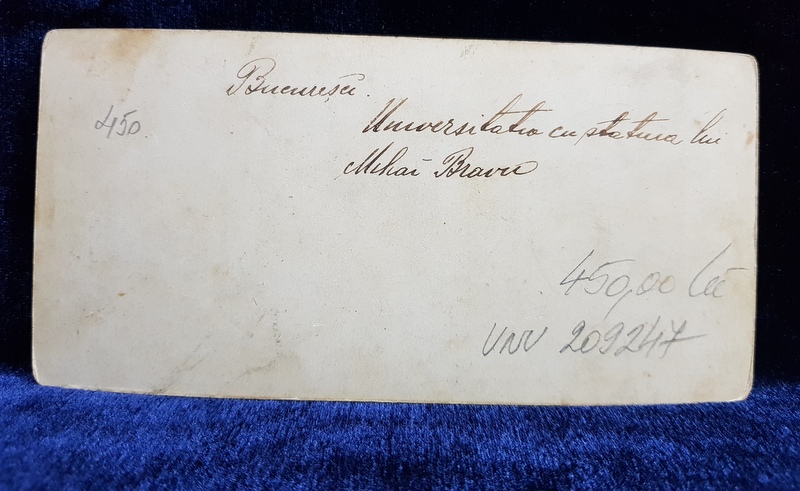 București.
450.
Universitatea cu statuia lui
Mihai Bravu
450,00 lei
VNV 209247